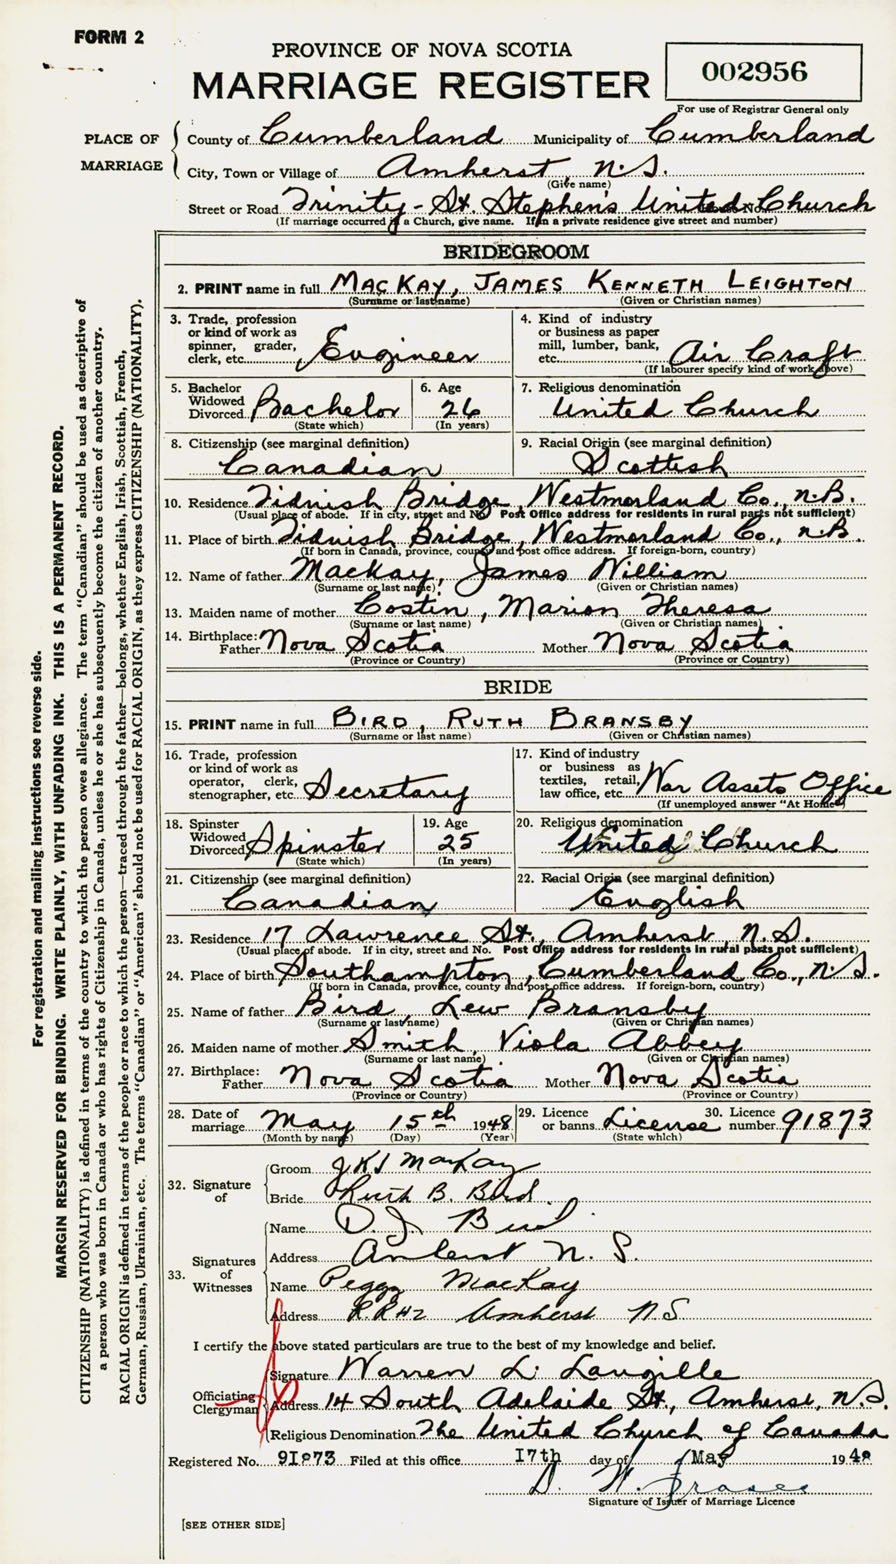 FORM 2
PROVINCE OF NOVA SCOTIA
MARRIAGE REGISTER
002956
For use of Registrar General only
PLACE OF MARRIAGE
County of Cumberland Municipality of Cumberland
City, Town or Village of Amherst, N.S.
(Give name)
Street or Road Trinity - St. Stephen's United Church
(If marriage occurred in a Church, give name. If in a private residence give street and number)
BRIDEGROOM
2. PRINT name in full MACKAY, JAMES KENNETH LEIGHTON
(Surname or last name) (Given or Christian names)
3. Trade, profession or kind of work as spinner, grader, clerk, etc. Engineer
4. Kind of industry or business as paper mill, lumber, bank, etc. Air Craft
(If labourer specify kind of work above)
5. Bachelor Widowed Divorced Bachelor
(State which)
6. Age 26
(In years)
7. Religious denomination
United Church
8. Citizenship (see marginal definition)
Canadian
9. Racial Origin (see marginal definition)
Scottish
10. Residence Tidnish Bridge, Westmorland Co., N.B.
(Usual place of abode. If in city, street and No. Post Office address for residents in rural parts not sufficient)
11. Place of birth Tidnish Bridge, Westmorland Co., N.B.
(If born in Canada, province, county and post office address. If foreign-born, country)
12. Name of father MacKay, James William
(Surname or last name) (Given or Christian names)
13. Maiden name of mother Costin, Marion Theresa
(Surname or last name) (Given or Christian names)
14. Birthplace: Father Nova Scotia Mother Nova Scotia
(Province or Country) (Province or Country)
BRIDE
15. PRINT name in full BIRD, RUTH BRANSBY
(Surname or last name) (Given or Christian names)
16. Trade, profession or kind of work as operator, clerk, stenographer, etc. Secretary
17. Kind of industry or business as textiles, retail, law office, etc. War Assets Office
(If unemployed answer "At Home")
18. Spinster Widowed Divorced Spinster
(State which)
19. Age 25
(In years)
20. Religious denomination
United Church
21. Citizenship (see marginal definition)
Canadian
22. Racial Origin (see marginal definition)
English
23. Residence 17 Lawrence St., Amherst, N.S.
(Usual place of abode. If in city, street and No. Post Office address for residents in rural parts not sufficient)
24. Place of birth Southampton, Cumberland Co., N.S.
(If born in Canada, province, county and post office address. If foreign-born, country)
25. Name of father Bird, Lew Bransby
(Surname or last name) (Given or Christian names)
26. Maiden name of mother Smith, Viola Abbey
(Surname or last name) (Given or Christian names)
27. Birthplace: Father Nova Scotia Mother Nova Scotia
(Province or Country) (Province or Country)
28. Date of marriage May 15th 1948
(Month by name) (Day) (Year)
29. Licence or banns License
(State which)
30. Licence number 91873
32. Signature of
Groom J K L MacKay
Bride Ruth B. Bird.
33. Signatures of Witnesses
Name D. J. Bird
Address Amherst N. S.
Name Peggy MacKay
Address R.R #2 Amherst N S
I certify the above stated particulars are true to the best of my knowledge and belief.
Officiating Clergyman
Signature Warren L. Langille
Address 14 South Adelaide St., Amherst, N.S.
Religious Denomination The United Church of Canada
Registered No. 91873 Filed at this office 17th day of May 1948
D. W. Fraser
Signature of Issuer of Marriage Licence
[SEE OTHER SIDE]
For registration and mailing instructions see reverse side.
MARGIN RESERVED FOR BINDING. WRITE PLAINLY, WITH UNFADING INK. THIS IS A PERMANENT RECORD.
CITIZENSHIP (NATIONALITY) is defined in terms of the country to which the person owes allegiance. The term "Canadian" should be used as descriptive of
a person who was born in Canada or who has rights of Citizenship in Canada, unless he or she has subsequently become the citizen of another country.
RACIAL ORIGIN is defined in terms of the people or race to which the person—traced through the father—belongs, whether English, Irish, Scottish, French,
German, Russian, Ukrainian, etc. The terms "Canadian" or "American" should not be used for RACIAL ORIGIN, as they express CITIZENSHIP (NATIONALITY).